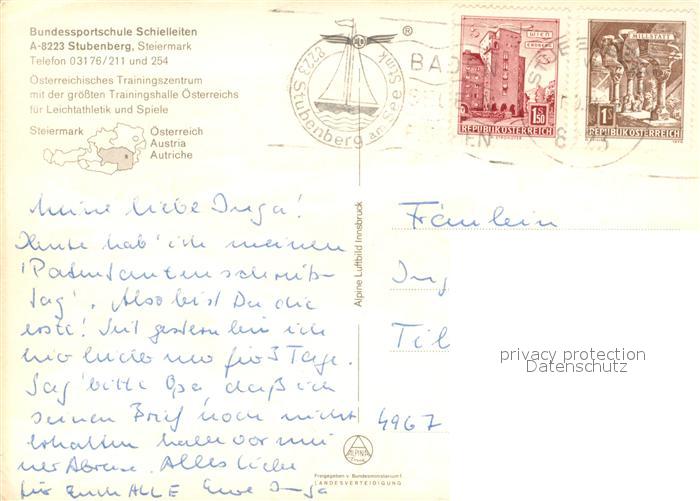 Bundessportschule Schielleiten
A-8223 Stubenberg, Steiermark
Telefon 03176/211 und 254
Österreichisches Trainingszentrum
mit der größten Trainingshalle Österreichs
für Leichtathletik und Spiele
Steiermark
Österreich
Austria
Autriche
8223 Stubenberg am See Stmk
®
BAD
WIEN
ERDBERG
1S50
REPUBLIK ÖSTERREICH
MILLSTATT
1S
REPUBLIK ÖSTERREICH
Meine liebe Inga!
Heute hab' ich meinen
'Patentantenschreib-
tag'. Also bist Du die
erste! Seit gestern bin ich
hier leider nur für 3 Tage.
Sag' bitte Opa daß ich
seinen Brief noch nicht
erhalten habe vor mei
ner Abreise. Alles Liebe
für Euch ALLE Eure Inga
Alpine Luftbild Innsbruck
Fräulein
Ing
Til
4967
privacy protection
Datenschutz
ALPINE
Freigegeben v. Bundesministerium f.
LANDESVERTEIDIGUNG